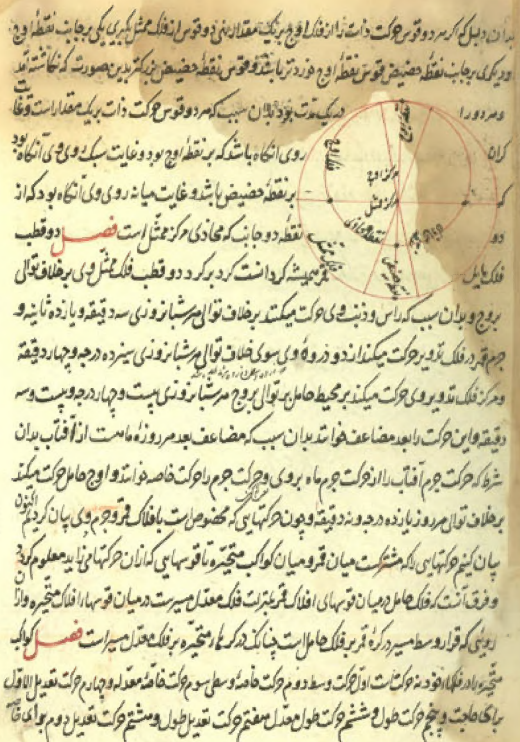 بدان دلیل که اگر هر دو قوس حرکت ذات را از فلک اوج بر یک مقدار نهی دو قوس از فلک ممثل گیری یکی بر جانب نقطهٔ اوج
و دیگری بر جانب نقطه حضیض قوس نقطهٔ اوج خردتر باشد و قوس نقطهٔ حضیض بزرکتر بدین صورت که نکاشته آمد
و هر دو را در یک مدت بود بدان سبب که هر دو قوس حرکت ذات بر یک مقدار است و غایت
کران روی آنگاه باشد که بر نقطهٔ اوج بود و غایت سبک روی وی آنگاه بود
که بر نقطهٔ حضیض باشد و غایت میانه روی وی آنگاه بود که از
دو نقطه دو جانب که محاذی مرکز ممثل است فصل دو قطب
فلک مایل قمر همیشه کردانست کرد بر کرد دو قطب فلک ممثل وی بر خلاف توالی
بروج و بدان سبب که راس و ذنب وی حرکت میکنند بر خلاف توالی هر شبانروزی سه دقیقه و یازده ثانیه و
جرم قمر در فلک تدویر حرکت میکند از دو ذروهٔ وی سوی خلاف توالی هر شبانروزی سیزده درجه و چهار دقیقه
و مرکز فلک تدویر وی حرکت میکند بر محیط حامل بر توالی بروج هر شبانروزی بیست و چهار درجه و بیست و سه
دقیقه و این حرکت را بعد مضاعف خوانند بدان سبب که مضاعف بعد هر روزهٔ ماهست از آفتاب بدان
شرط که حرکت جرم آفتاب را از حرکت جرم ماه بروی و حرکت جرم را حرکت خاصه خوانند و اوج حامل حرکت میکند
بر خلاف توالی هر روز یازده درجه و نه دقیقه و چون حرکتهایی که مخصوص است بافلاک قمر و جرم وی بیان کردیم اکنون
بیان کنیم حرکتهایی را که مشترکست میان قمر و میان کواکب متحیره تا قوسهایی که از ان حرکتها می زاید معلوم کردد
و فرق آنست که فلک حامل در میان قوسهای افلاک قمر بمنزلت فلک معدل مسیرست در میان قوسهاء افلاک متحیره و از ان
رویی که قرار وسط مسیر در کرهٔ قمر بر فلک حامل است چنانک در کرهاء متحیره بر فلک معدل مسیر است فصل کواکب
متحیره را در فلکها خود نه حرکات است اول حرکت وسط دوم حرکت خاصهٔ وسطی سوم حرکت خاصهٔ معدله و چهارم حرکت تعدیل الاول
برای خاصه و پنجم حرکت طول و ششم حرکت طول معدل هفتم حرکت تعدیل طول و هشتم حرکت تعدیل دوم برای خاصه
مرکز اوج
مرکز ممثل
نقطه محاذی
فلک ممثل